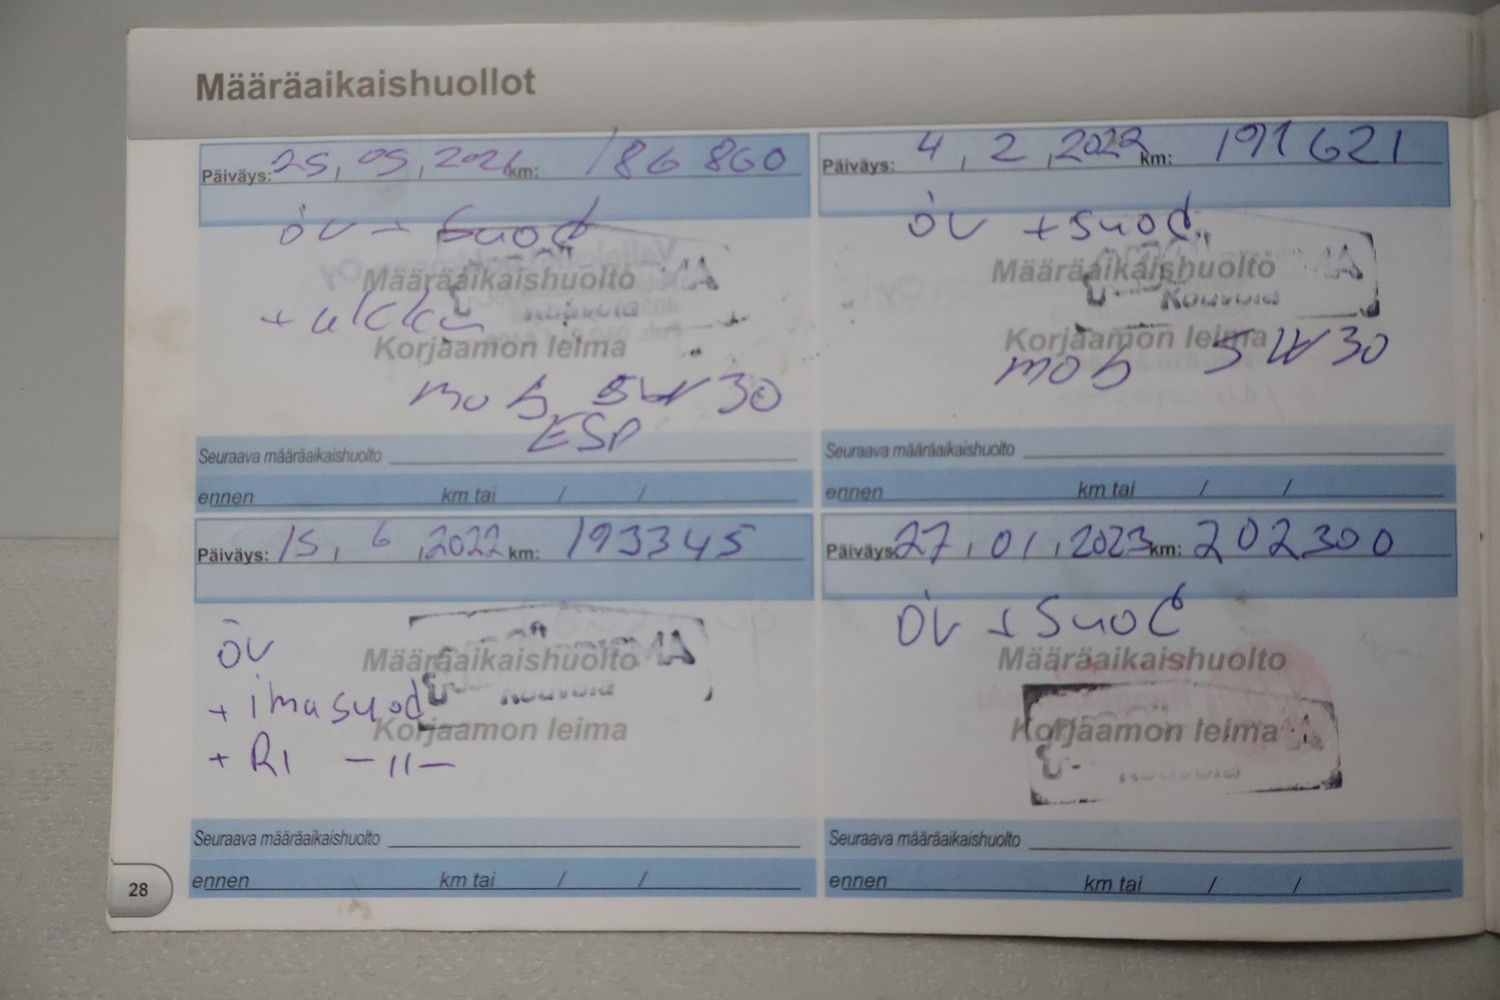 Määräaikaishuollot
Päiväys: 25, 05, 2021 km: 186 860
öv + Suod
Määräaikaishuolto
Kouvola
Korjaamon leima
mob 5W30
ESP
Seuraava määräaikaishuolto
ennen km tai / /
Päiväys: 4, 2, 2022 km: 191621
öv + suod
Määräaikaishuolto
Kouvola
Korjaamon leima
mob 5W30
Seuraava määräaikaishuolto
ennen km tai / /
Päiväys: 15, 6, 2022 km: 193345
öv
Määräaikaishuolto
Kouvola
+ imasuod
Korjaamon leima
+ RI -11-
Seuraava määräaikaishuolto
ennen km tai / /
Päiväys: 27, 01, 2023 km: 202300
öv + Suod
Määräaikaishuolto
Korjaamon leima
Kouvola
Seuraava määräaikaishuolto
ennen km tai / /
28